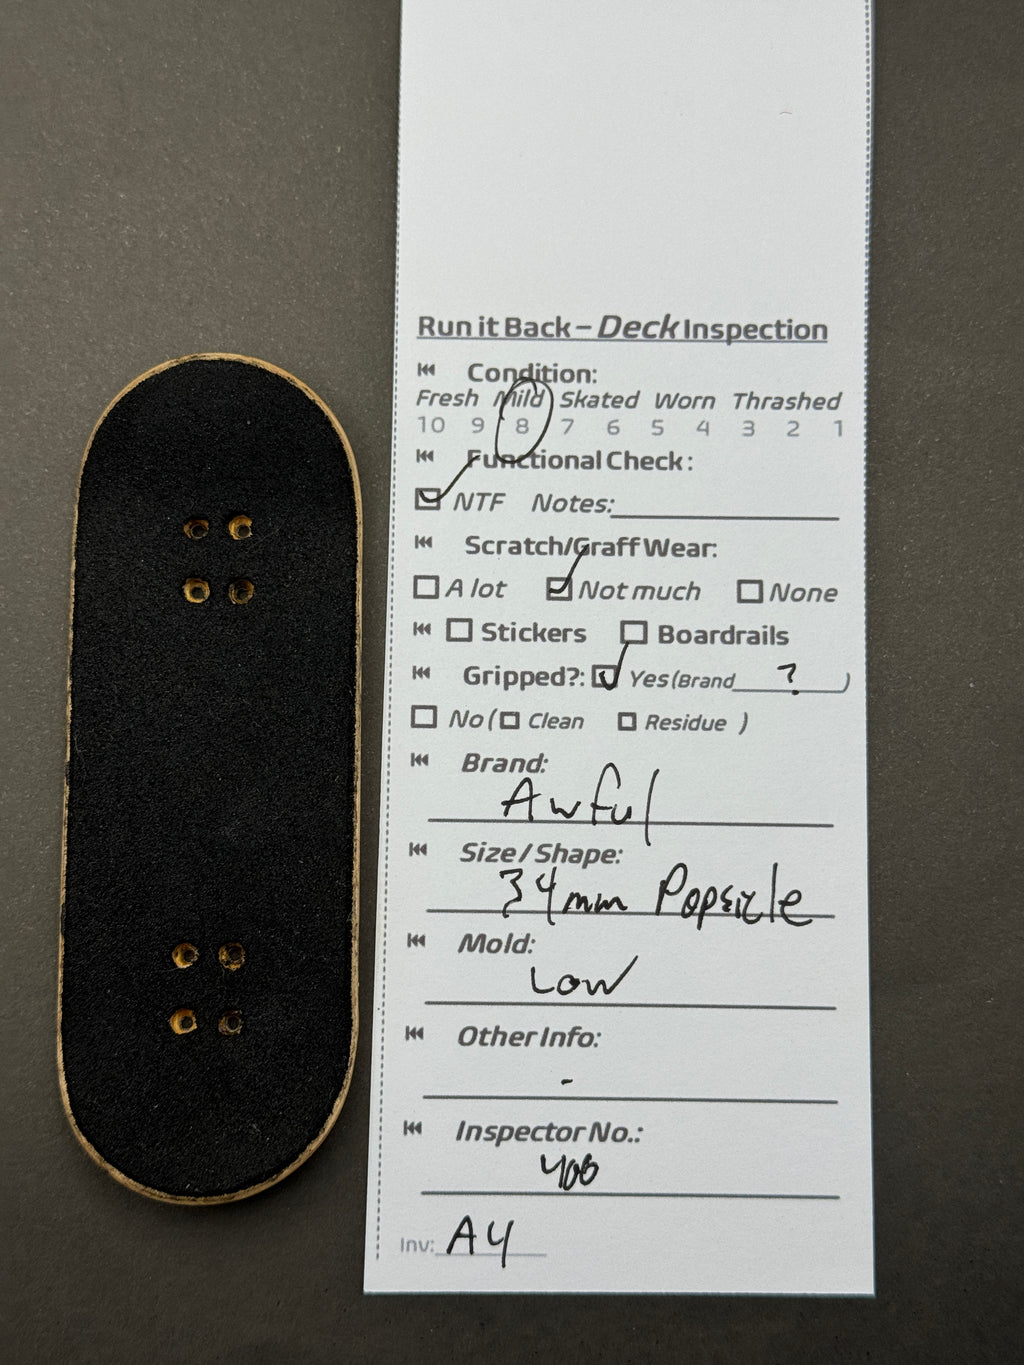 Run it Back – Deck Inspection
Condition:
Fresh Mild Skated Worn Thrashed
10 9 8 7 6 5 4 3 2 1
Functional Check:
NTF Notes:
Scratch/Graff Wear:
A lot Not much None
Stickers Boardrails
Gripped?: Yes (Brand ? )
No ( Clean Residue )
Brand:
Awful
Size/Shape:
34mm Popsicle
Mold:
Low
Other Info:
-
Inspector No.:
400
Inv: A4